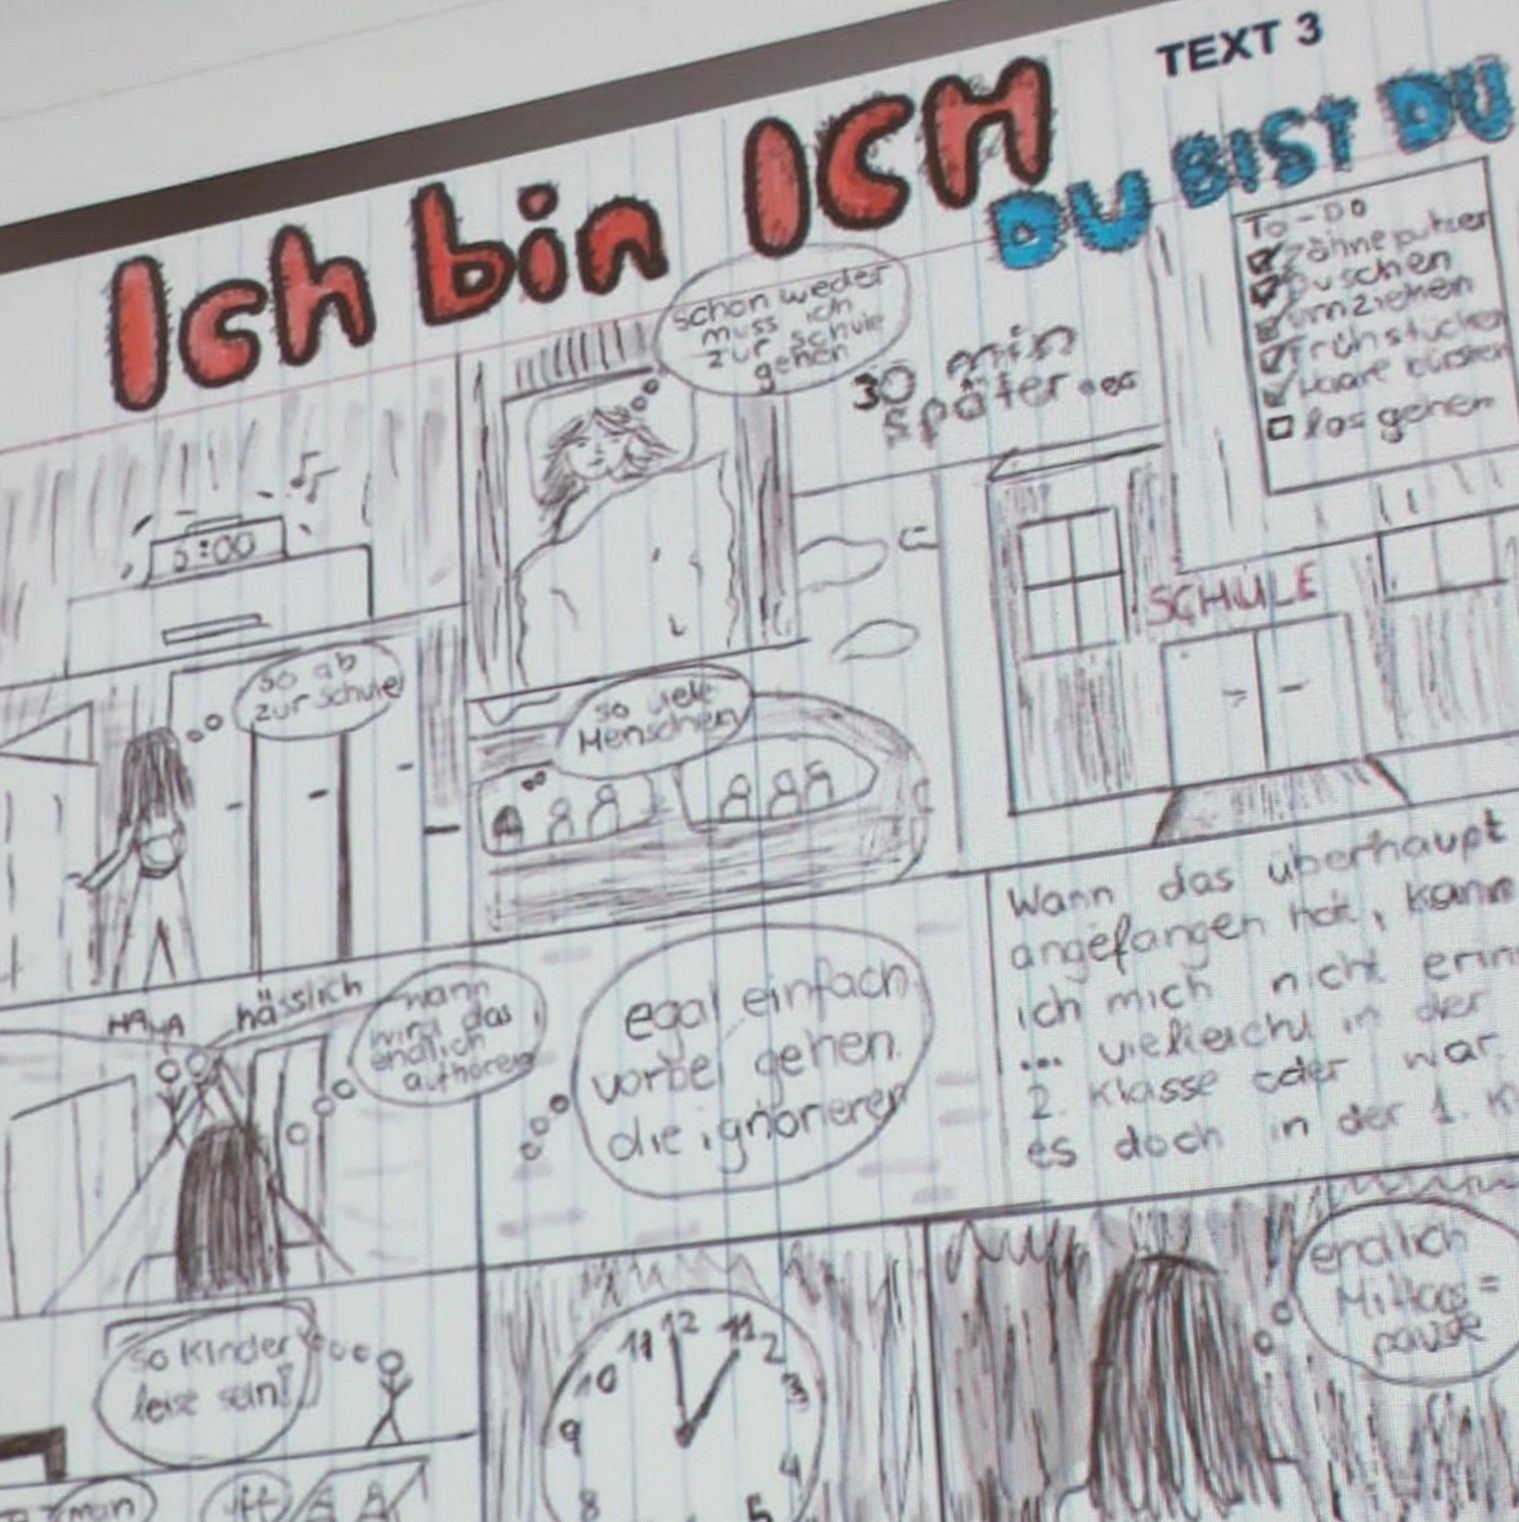 TEXT 3
Ich bin ICH
DU BIST DU
schon weder
muss ich
zur schule
gehen
30 min
später...
To-DO
Zähne putzen
Duschen
umziehen
Frühstücken
Haare bürsten
los gehen
:00
so ab
zur Schule
so viele
Menschen
SCHULE
HAHA
hässlich
wann
wird das
endlich
aufhören
egal einfach
vorbei gehen.
die ignorieren
Wann das überhaupt
angefangen hat, kann
ich mich nicht erin
... vielleicht in der
2. Klasse oder war
es doch in der 1. K
so Kinder
leise sein!
12
11
11
2
10
3
9
4
8
5
endlich
Mittags=
pause
man